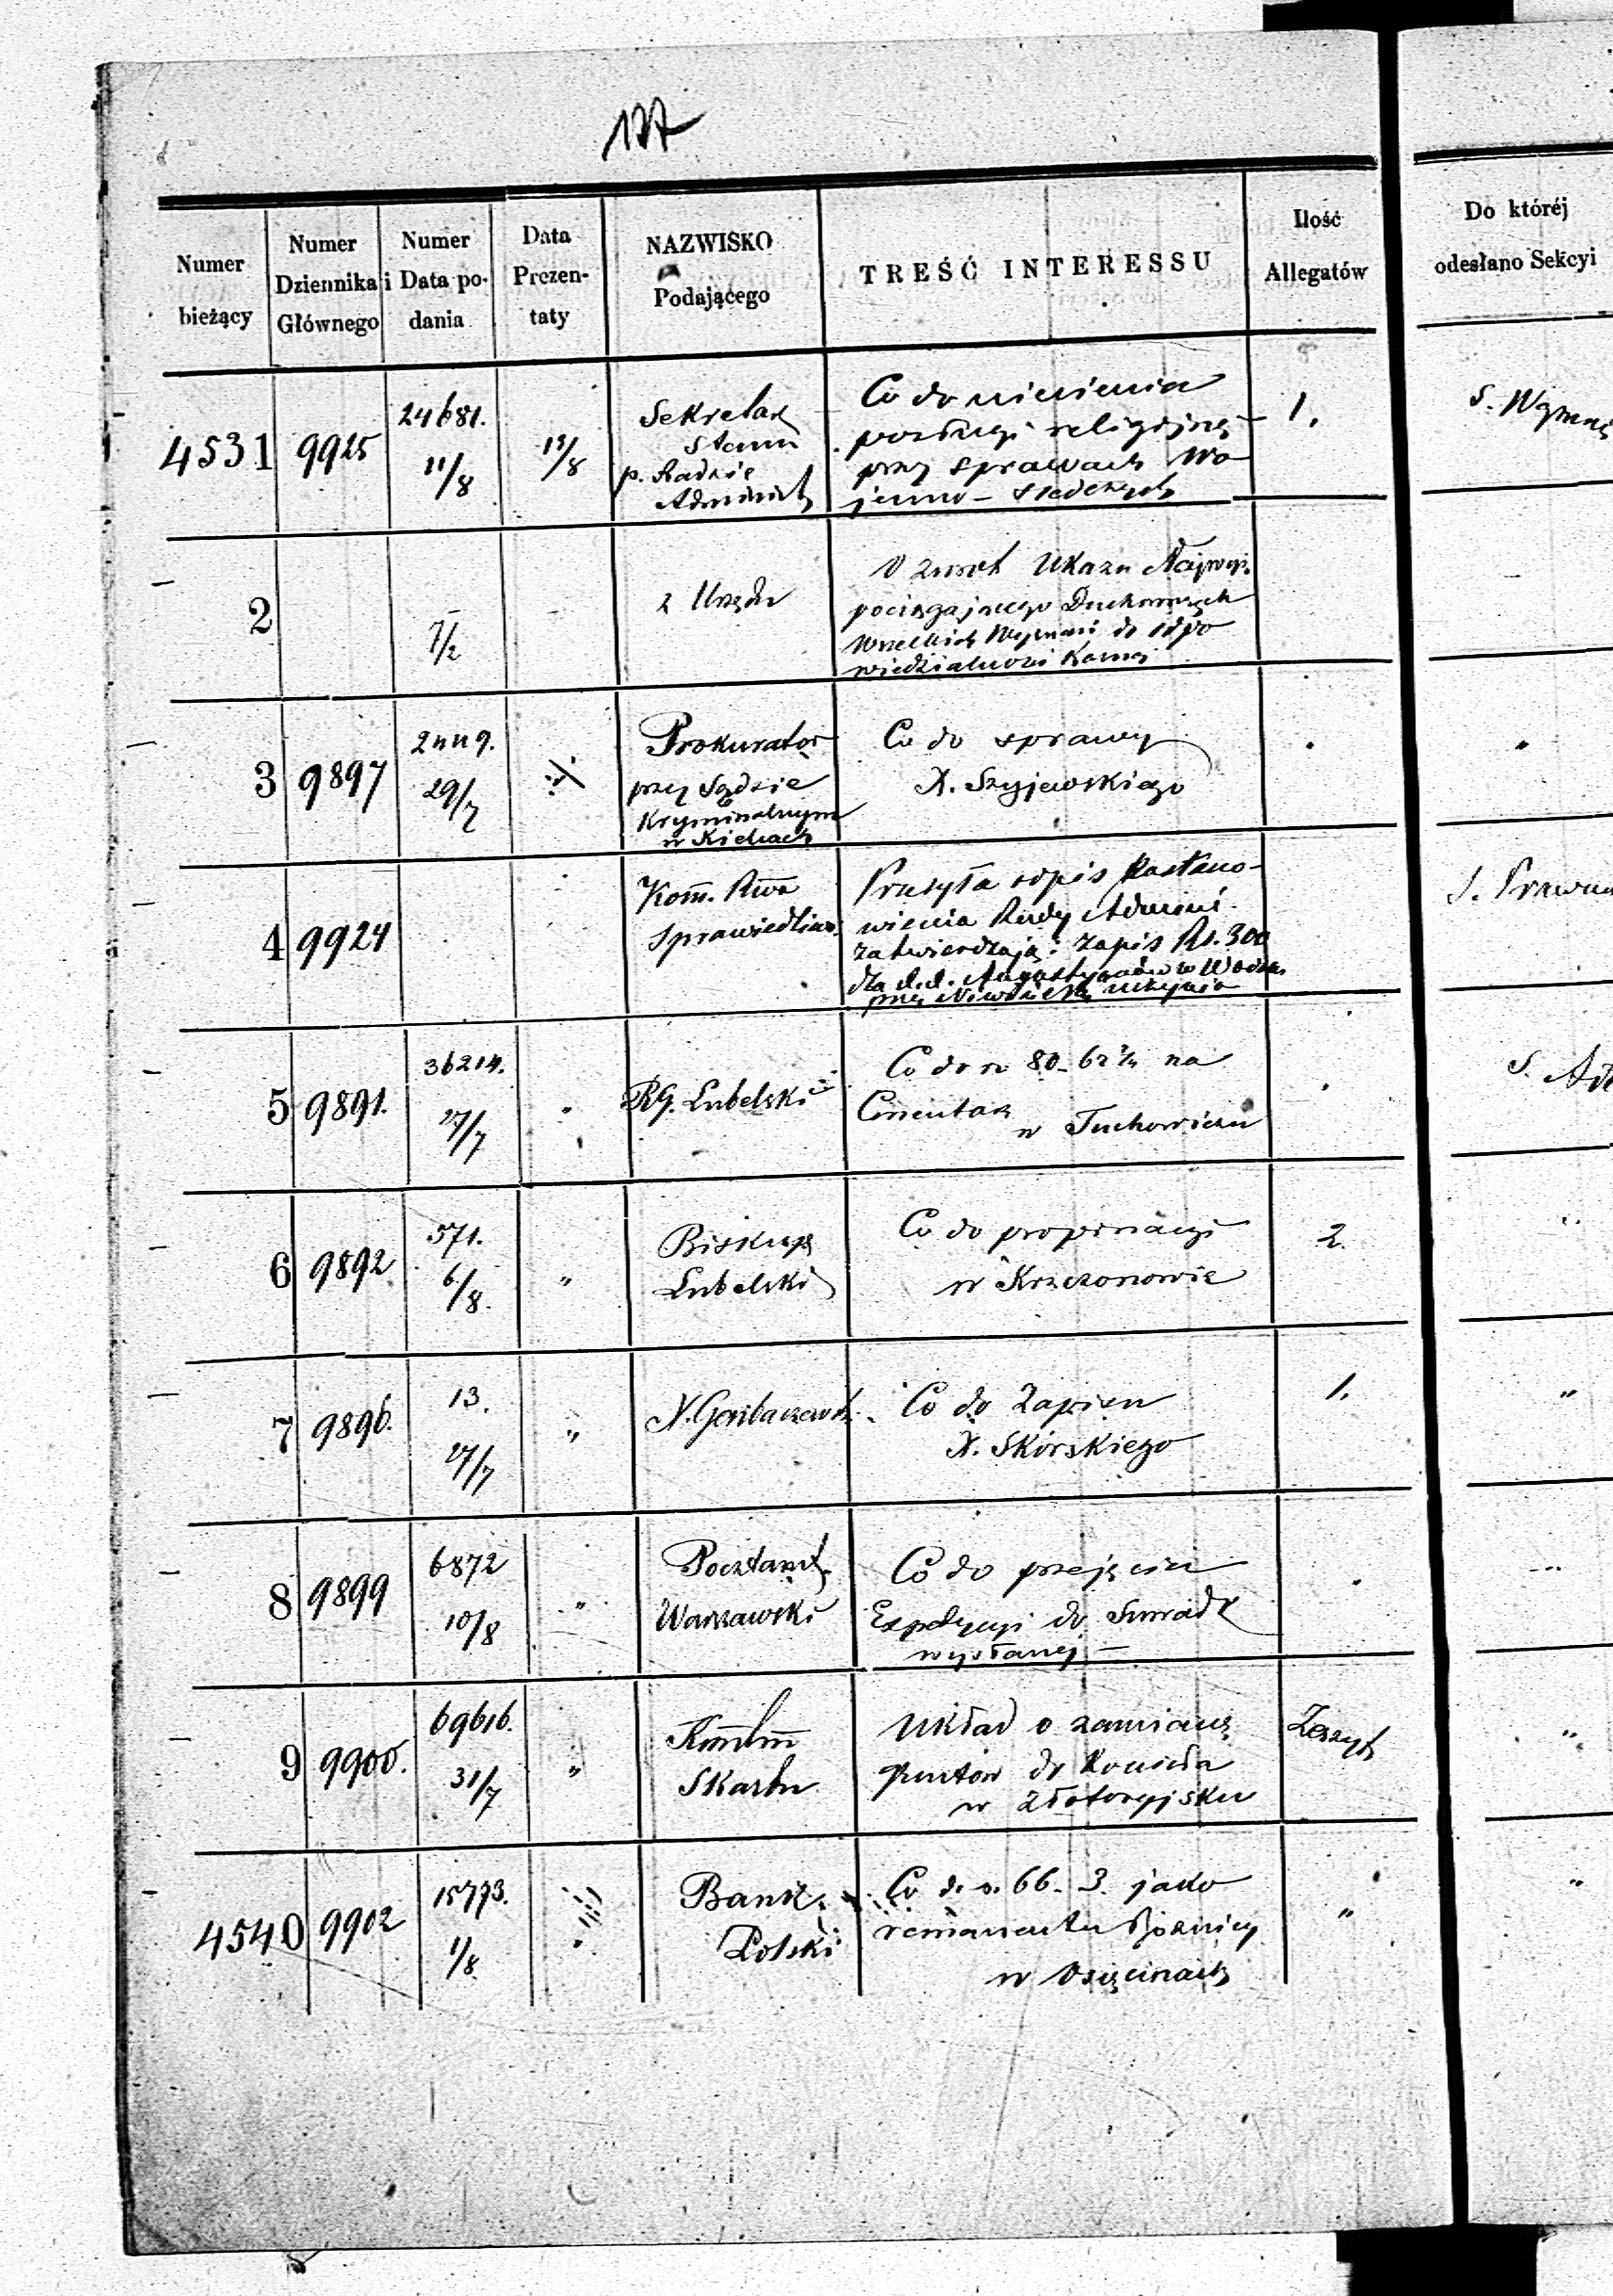 177
Numer bieżący
Numer Dziennika Głównego
Numer i Data podania
Data Prezentaty
NAZWISKO Podającego
TREŚĆ INTERESSU
Ilość Allegatów
Do któréj odesłano Sekcyi
4531 9925
24681.
11/8
13/8
Sekretarz
Stanu
p. Radzie
Administ
Co do niesienia
posługi religijnej
przy sprawach Wo
jenno – sledczych
1.
S. Wyznań
2
7/2
z Urzędu
Ukazu Najwyż.
pociągającego Duchownych
Wszelkich Wyznań do odpo
wiedzialności Karnej
3 9897
29/7
Prokurator
przy Sądzie
Kryminalnym
w Kielcach
Co do sprawy
X. Szyjewskiego
4 9924
Kom. Rwa
Sprawiedliwo.
Przesyła odpis Postano-
wienia Rady Admini.
zatwierdzają: zapis Rs. 300
dla
przez
S. Prawna
5 9891.
36214.
27/7
"
RG. Lubelski
Co do rs 80. 62½ na
Cmentarz
w Tuchowiczu
S. Ad
6 9892
571.
6/8.
"
Biskup
Lubelski
Co do propinacyi
w Krzczonowie
2.
7 9896.
13.
27/7
"
X. Gorbaczewsk.
Co do Zapisu
X. Skórskiego
1.
"
8 9899
6872
10/8
"
Pocztamt
Warszawski
Co do przejęcia
Expedycyi do Suwałk
wysłanej –
9 9900.
69616.
31/7
"
Skarbu
Układ o zamianę
gruntów do Kościoła
w Złotoryjsku
Zeszyt
"
4540 9902
15773.
1/8
"
Bank
Polski
Co do rs. 66. 3. jako
remanentu Bożnicy
w Osięcinach
"
"